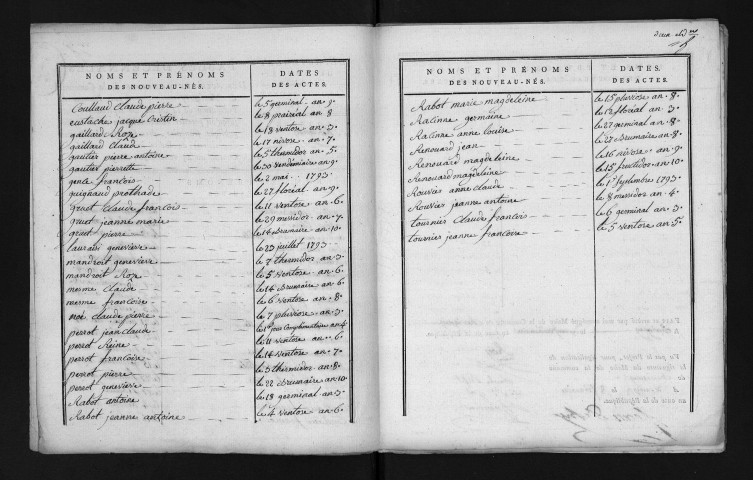 NOMS ET PRÉNOMS DATES
DES NOUVEAU-NÉS. DES ACTES.
Couillaud Claude pierre le 5 germinal an 9.
eustache jacque Cristin le 8 prairial an 8
gaillard Rose le 18 ventose an 3.
gaillard Claude le 17 nivose an 7.
gautier pierre antoine le 5 thermidor an 5.
gautier pierrette le 30 vendémiaire an 9.
gente françois le 2 mai 1793.
guignaud prothade le 27 floréal an 9.
gruet Claude françois le 11 ventose an 6.
gruet jeanne marie le 29 messidor an 7.
gruet pierre le 14 brumaire an 10.
laurain genevieve le 23 juillet 1793.
mandroit genevieve le 7 thermidor an 3.
mandroit Rose le 5 ventose an 6.
mesme Claude le 14 Brumaire an 6.
mesme francoise le 6 ventose an 8.
noé Claude pierre le 7 pluviose an 3.
perrot jean Claude le 1er jour Complémentaire an 4
perrot Reine le 11 ventose an 6.
perrot francoise le 14 ventose an 7.
perrot pierre le 3 thermidor an 8.
perrot genevieve le 22 Brumaire an 10.
Rabot antoine le 18 germinal an 3.
Rabot jeanne antoine le 4 ventose an 6.
NOMS ET PRÉNOMS DATES
DES NOUVEAU-NÉS. DES ACTES.
Rabot marie magdeleine le 15 pluviose an 8.
Racinne germaine le 12 floréal an 3.
Racinne anne louise le 27 germinal an 8.
Renouard jean le 27 Brumaire an 8.
Renouard magdeleine le 16 nivose an 9.
Renouard magdeleine le 15 fructidor an 10.
Rouvier anne claude le 1er Septembre 1793.
Rouvier jeanne antoine le 8 messidor an 4.
tournier Claude francois le 6 germinal an 3.
tournier jeanne francoise le 5 ventose an 5.